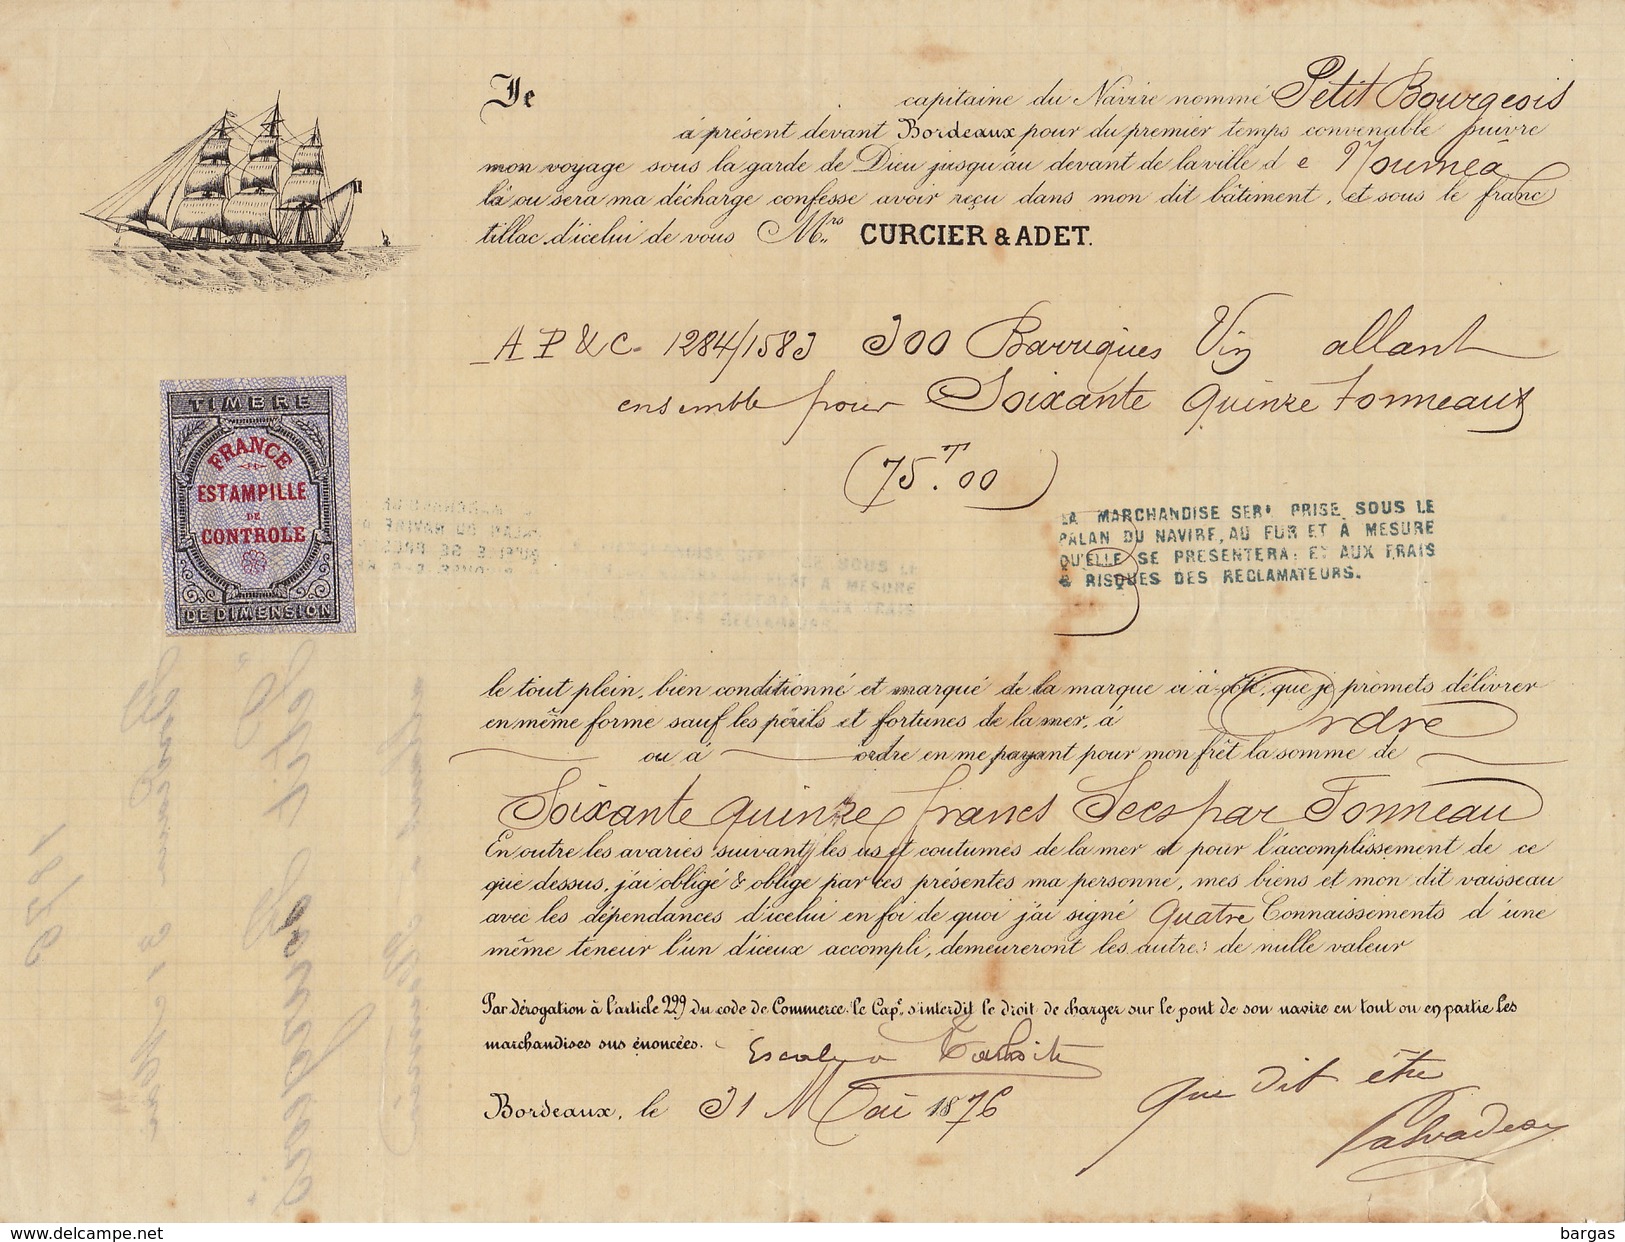 Je capitaine du Navire nommé Petit Bourgeois
à présent devant Bordeaux pour du premier temps convenable suivre
mon voyage sous la garde de Dieu jusqu'au devant de la ville de Nouméa
là ou sera ma décharge confesse avoir reçu dans mon dit bâtiment, et sous le franc
tillac d'icelui de vous Mrs CURCIER & ADET.
A P & C. 1284/1583 300 Barriques Vin allant
ensemble pour Soixante Quinze Tonneaux
(75.T00)
TIMBRE
FRANCE
ESTAMPILLE
DE
CONTROLE
DE DIMENSION
LA MARCHANDISE SERA PRISE SOUS LE
PALAN DU NAVIRE, AU FUR ET À MESURE
QU'ELLE SE PRESENTERA: ET AUX FRAIS
& RISQUES DES RECLAMATEURS.
le tout plein, bien conditionné et marqué de la marque ci à côté, que je promets délivrer
en même forme sauf les périls et fortunes de la mer, à Ordre
ou à ordre en me payant pour mon frêt la somme de
Soixante quinze francs Secs par Tonneau
En outre les avaries suivant les us et coutumes de la mer et pour l'accomplissement de ce
que dessus, j'ai obligé & oblige par ces présentes ma personne, mes biens et mon dit vaisseau
avec les dépendances d'icelui en foi de quoi j'ai signé Quatre Connaissements d'une
même teneur l'un d'iceux accompli, demeureront les autres de nulle valeur
Par dérogation à l'article 229 du code de Commerce le Cape s'interdit le droit de charger sur le pont de son navire en tout ou en partie les
marchandises sus énoncées.
Bordeaux, le 31 Mai 1876
Que dit être
bargas